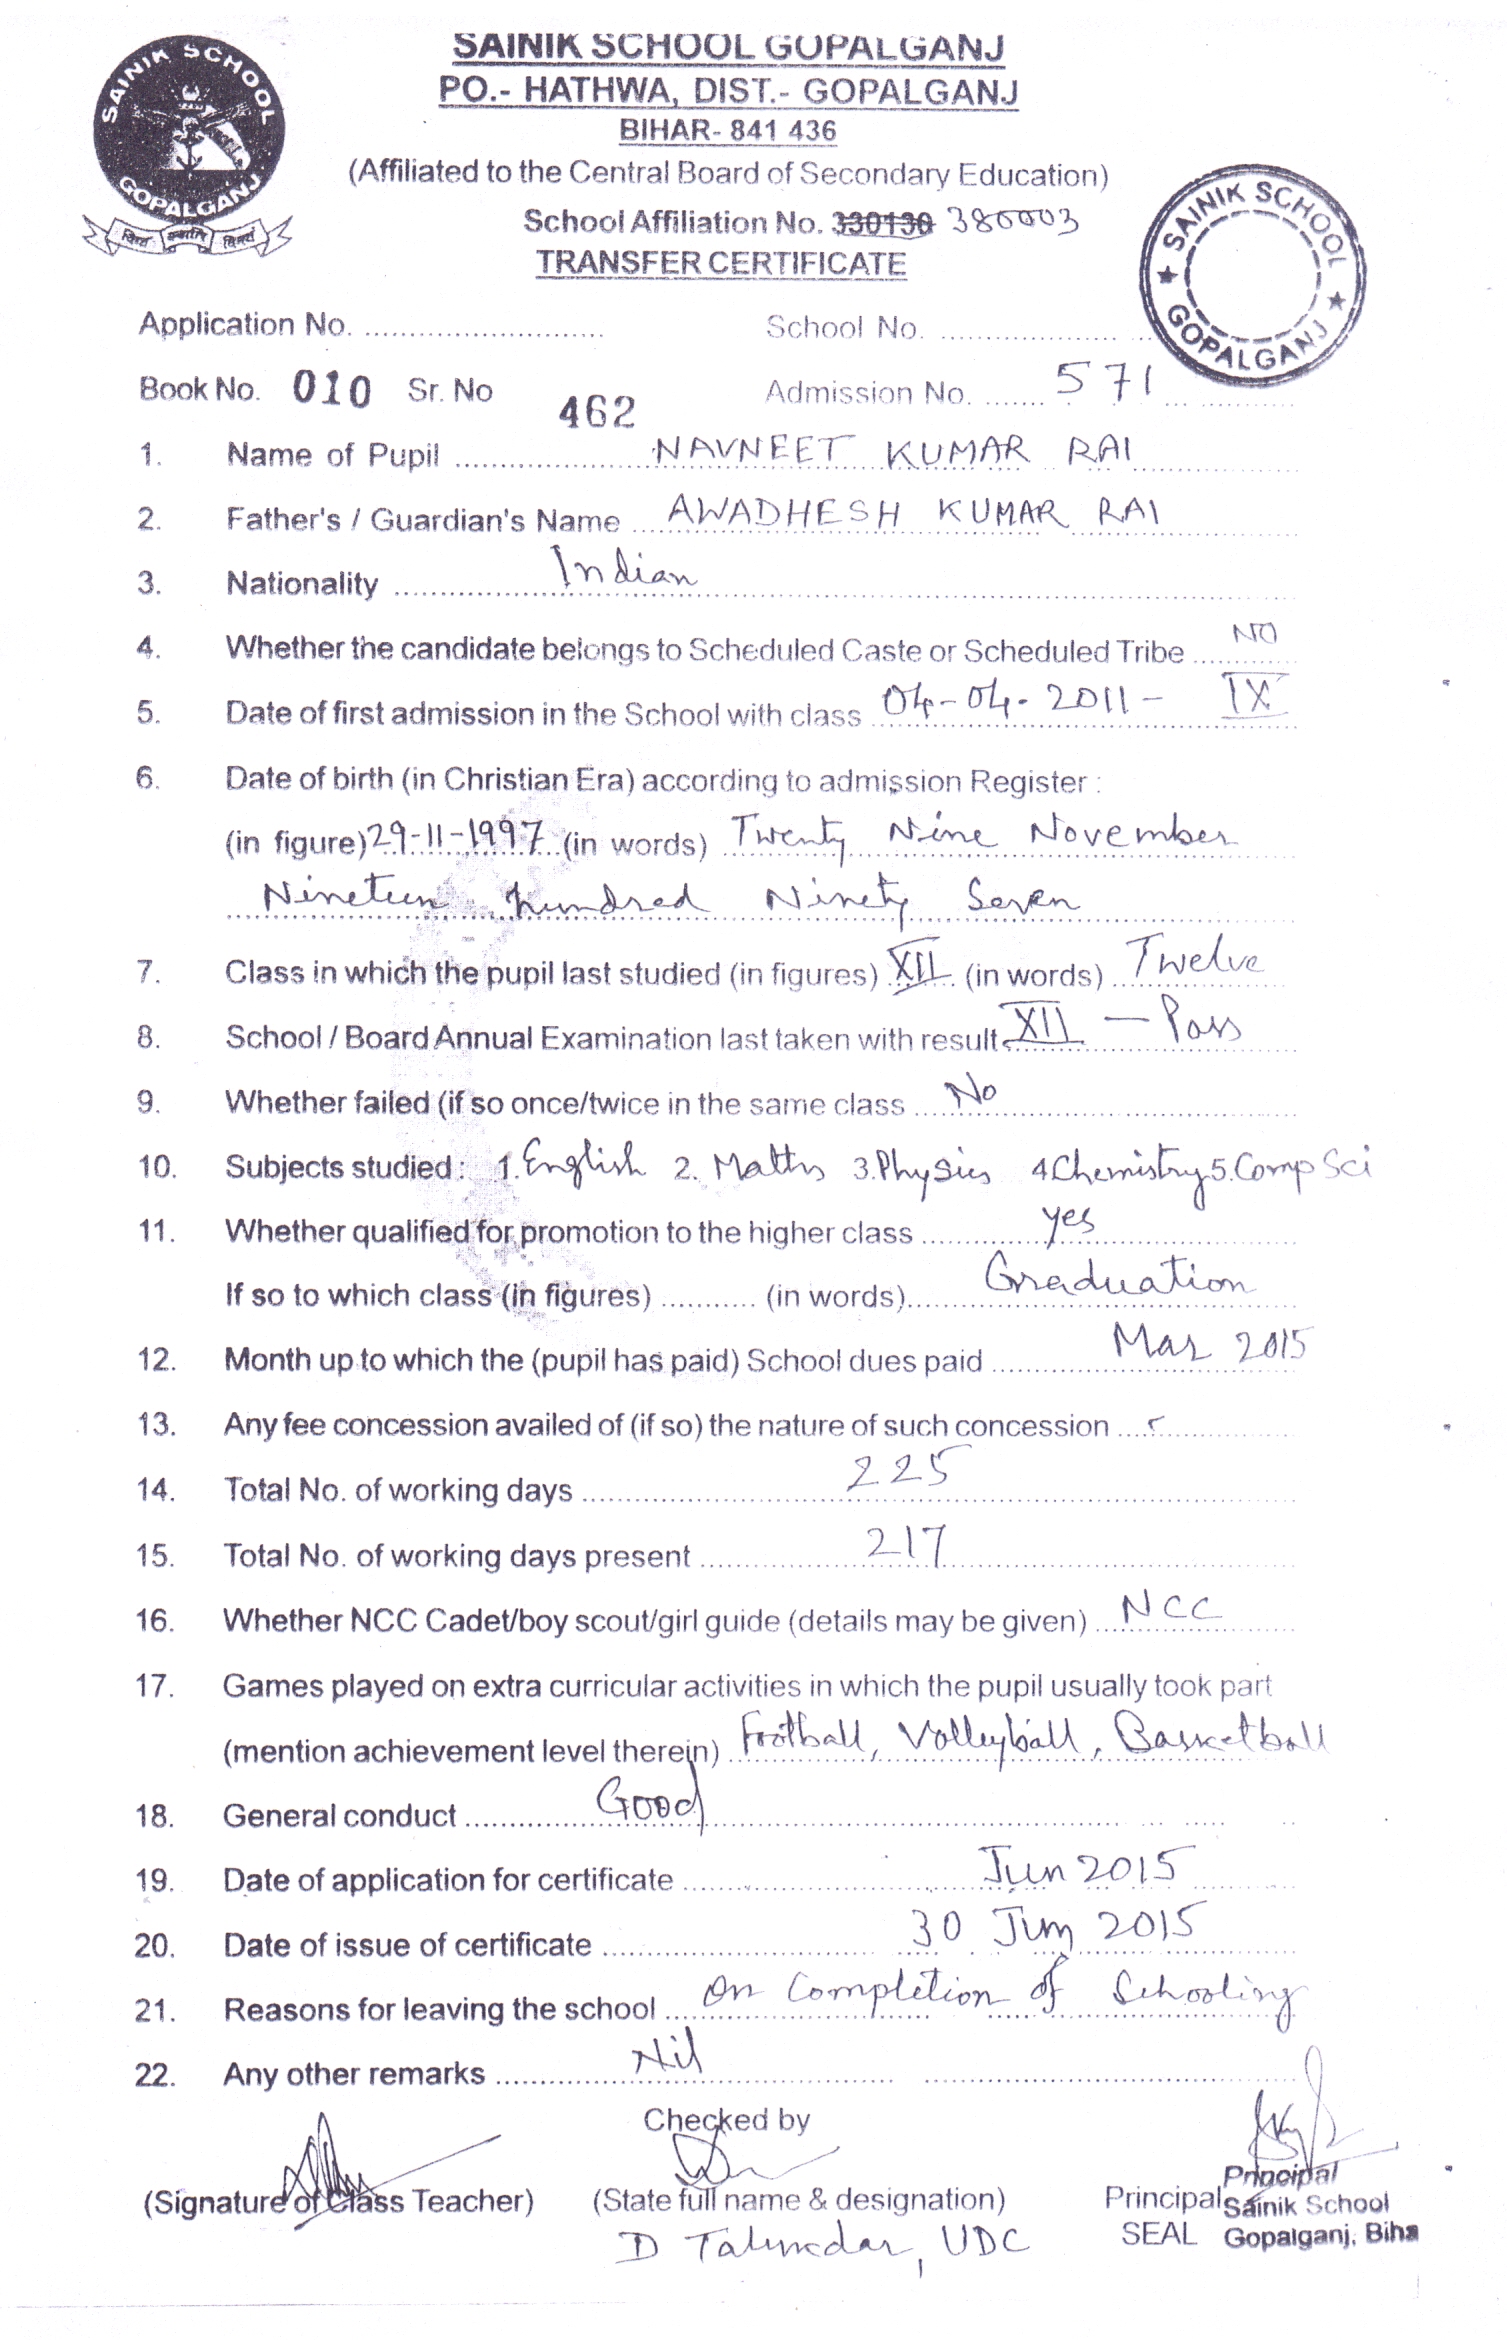 SAINIK SCHOOL
GOPALGANJ
SAINIK SCHOOL GOPALGANJ
PO.- HATHWA, DIST.- GOPALGANJ
BIHAR- 841 436
(Affiliated to the Central Board of Secondary Education)
School Affiliation No. 330130 380003
TRANSFER CERTIFICATE
SAINIK SCHOOL
GOPALGANJ
Application No. ........................... School No. ....................
Book No. 010 Sr. No 462 Admission No. ....... 571
1. Name of Pupil NAVNEET KUMAR RAI
2. Father's / Guardian's Name AWADHESH KUMAR RAI
3. Nationality Indian
4. Whether the candidate belongs to Scheduled Caste or Scheduled Tribe NO
5. Date of first admission in the School with class 04-04-2011 - IX
6. Date of birth (in Christian Era) according to admission Register :
(in figure) 29-11-1997 (in words) Twenty Nine November
Nineteen hundred Ninety Seven
7. Class in which the pupil last studied (in figures) XII (in words) Twelve
8. School / Board Annual Examination last taken with result XII — Pass
9. Whether failed (if so once/twice in the same class No
10. Subjects studied : 1. English 2. Maths 3. Physics 4 Chemistry 5. Comp Sci
11. Whether qualified for promotion to the higher class yes
If so to which class (in figures) ........... (in words) Graduation
12. Month up to which the (pupil has paid) School dues paid Mar 2015
13. Any fee concession availed of (if so) the nature of such concession
14. Total No. of working days 225
15. Total No. of working days present 217
16. Whether NCC Cadet/boy scout/girl guide (details may be given) NCC
17. Games played on extra curricular activities in which the pupil usually took part
(mention achievement level therein) Football, Volleyball, Basketball
18. General conduct Good
19. Date of application for certificate Jun 2015
20. Date of issue of certificate 30 Jun 2015
21. Reasons for leaving the school On Completion of Schooling
22. Any other remarks Nil
Checked by
(Signature of Class Teacher) (State full name & designation) Principal
D Talukdar, UDC SEAL
Principal
Sainik School
Gopalganj, Biha